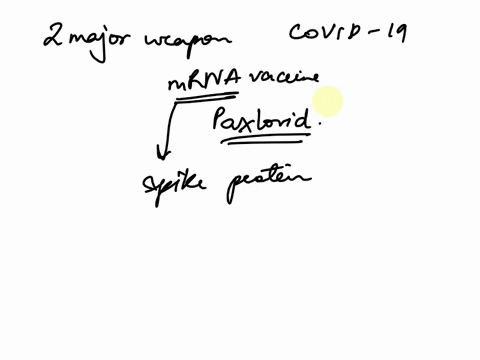 2 major weapon COVID-19
mRNA vaccine
Paxlovid.
spike protein